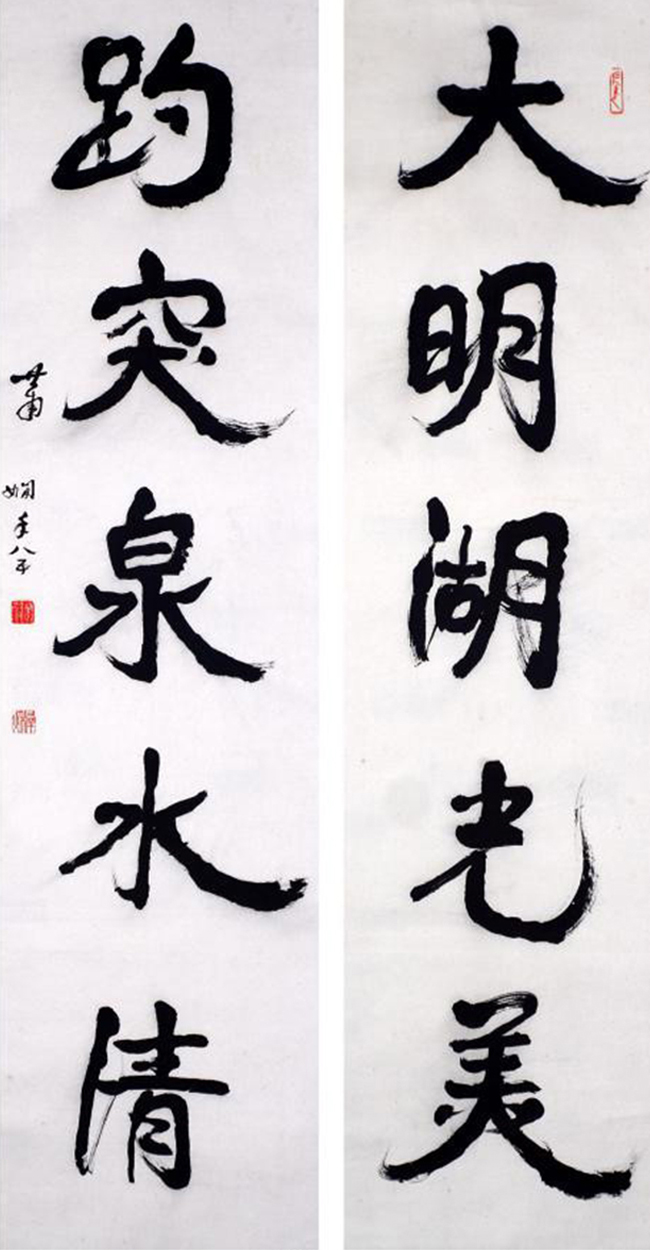 大明湖光美
趵突泉水清
萧娴年八五